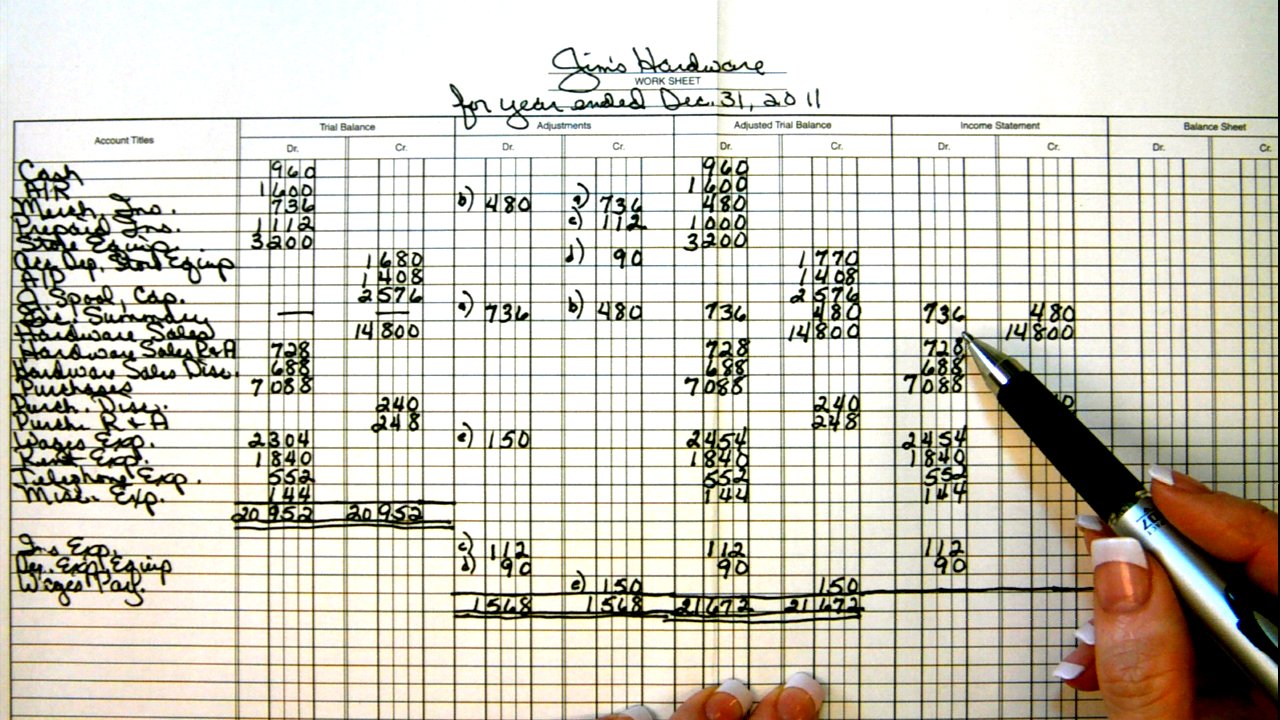 Jim's Hardware
WORK SHEET
for year ended Dec. 31, 2011
Account Titles Trial Balance Adjustments Adjusted Trial Balance Income Statement Balance Sheet
Dr. Cr. Dr. Cr. Dr. Cr. Dr. Cr. Dr. Cr.
Cash 960 960
A/R 1600 1600
Merch. Ins. 736 b) 480 a) 736 480
Prepaid Ins. 1112 c) 112 1000
Store Equip. 3200 3200
Acc. Dep. Store Equip 1680 d) 90 1770
A/P 1408 1408
J. Spool, Cap. 2576 2576
Inc. Summary — — a) 736 b) 480 736 480 736 480
Hardware Sales 14800 14800 14800
Hardware Sales R+A 728 728 728
Hardware Sales Disc. 688 688 688
Purchases 7088 7088 7088
Purch. Disc. 240 240
Purch. R+A 248 248
Wages Exp. 2304 e) 150 2454 2454
Rent Exp. 1840 1840 1840
Telephone Exp. 552 552 552
Misc. Exp. 144 144 144
20952 20952
Ins Exp. c) 112 112 112
Dep. Exp. Equip d) 90 90 90
Wages Pay. e) 150 150
1568 1568 21672 21672